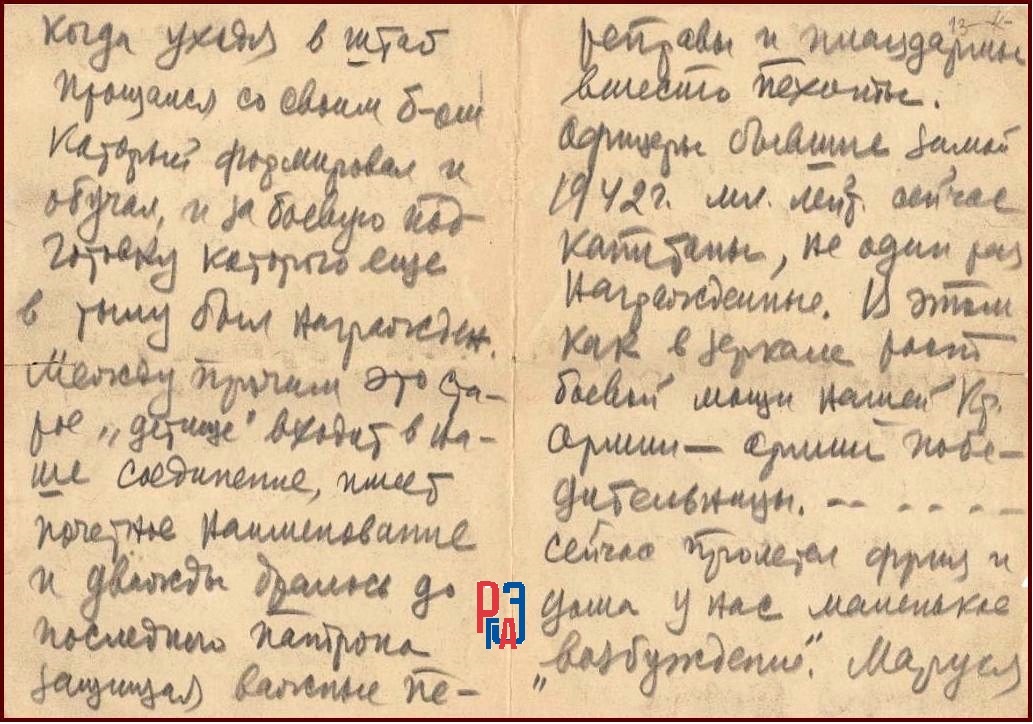 когда уходя в штаб
прощался со своим б-ом
Каторый формировал и
обучал, и за боевую под
готовку которого еще
в тылу был награжден.
Между прочим это ста-
рое „детище" входит в на-
ше соединение, имеет
почетное наименование
и дважды дралось до
последнего патрона
защищая важные пе-
реправы и плацдармы
вместо пехоты.
Офицеры бывшие зимой
1942 г. мл. лейт. сейчас
капитаны, не один раз
награжденные. В этом
как в зеркале рост
боевой мощи нашей Кр.
Армии — армии побе-
дительницы. — — - - - —
Сейчас пролетел фриц и
дома у нас маленькое
„возбуждение". Маруся
РГАЭ